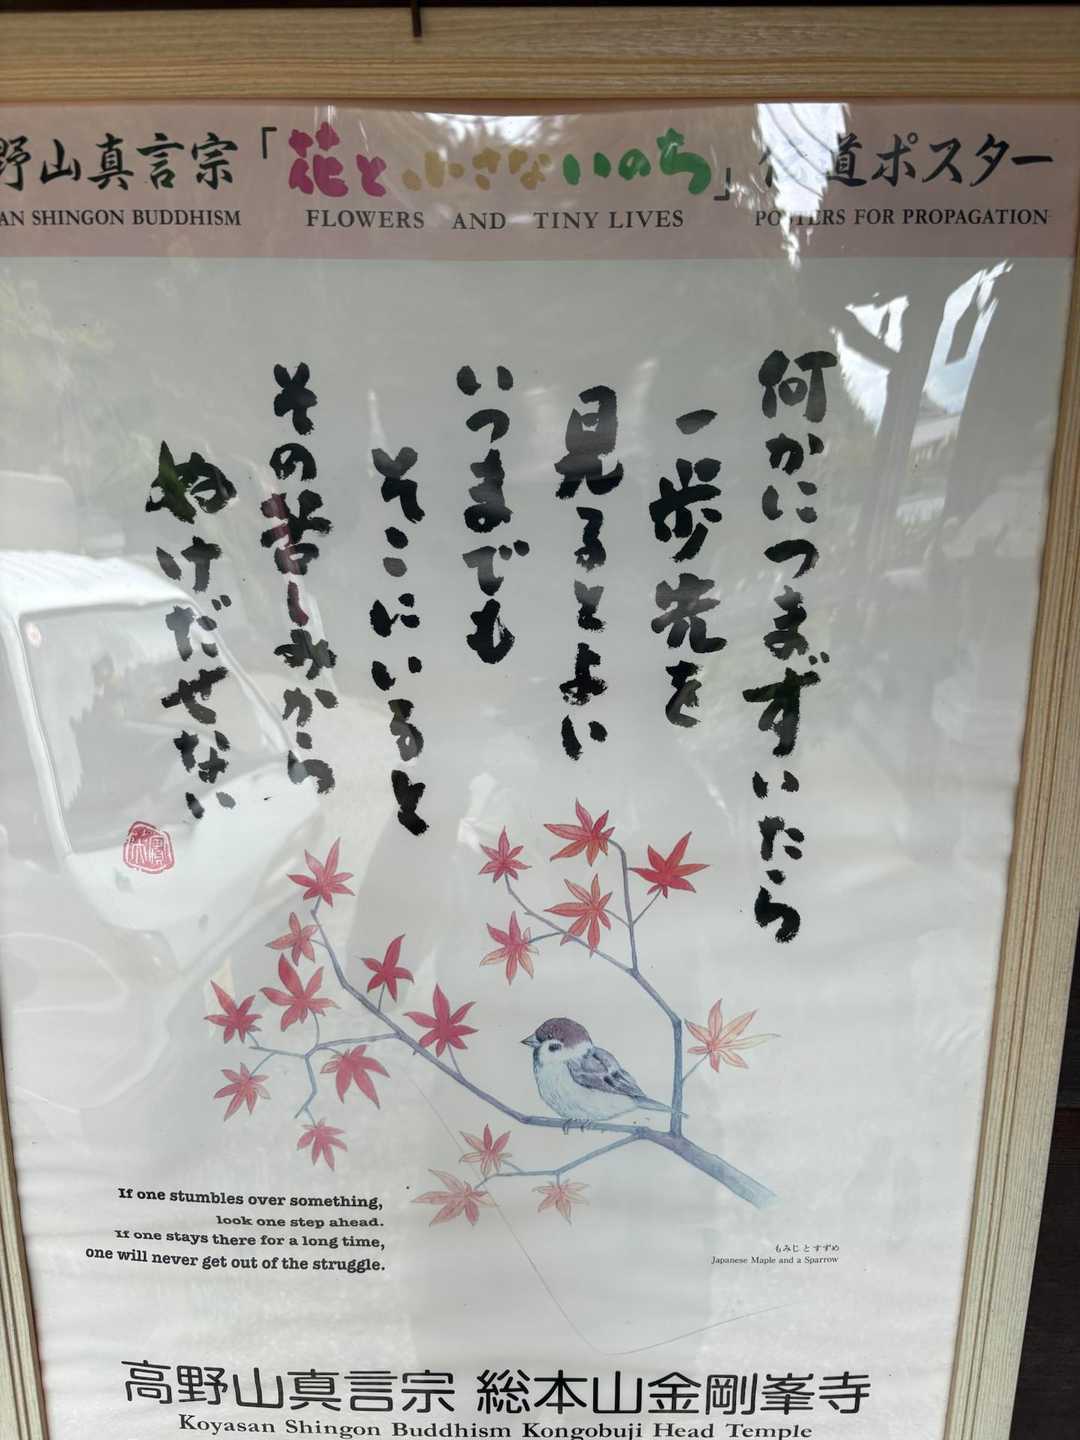 野山真言宗「花と小さないのち」伝道ポスター
AN SHINGON BUDDHISM FLOWERS AND TINY LIVES POSTERS FOR PROPAGATION
何かにつまずいたら
一歩先を
見るとよい
いつまでも
そこにいると
その苦しみから
ぬけだせない
If one stumbles over something,
look one step ahead.
If one stays there for a long time,
one will never get out of the struggle.
もみじ と すずめ
Japanese Maple and a Sparrow
高野山真言宗 総本山金剛峯寺
Koyasan Shingon Buddhism Kongobuji Head Temple